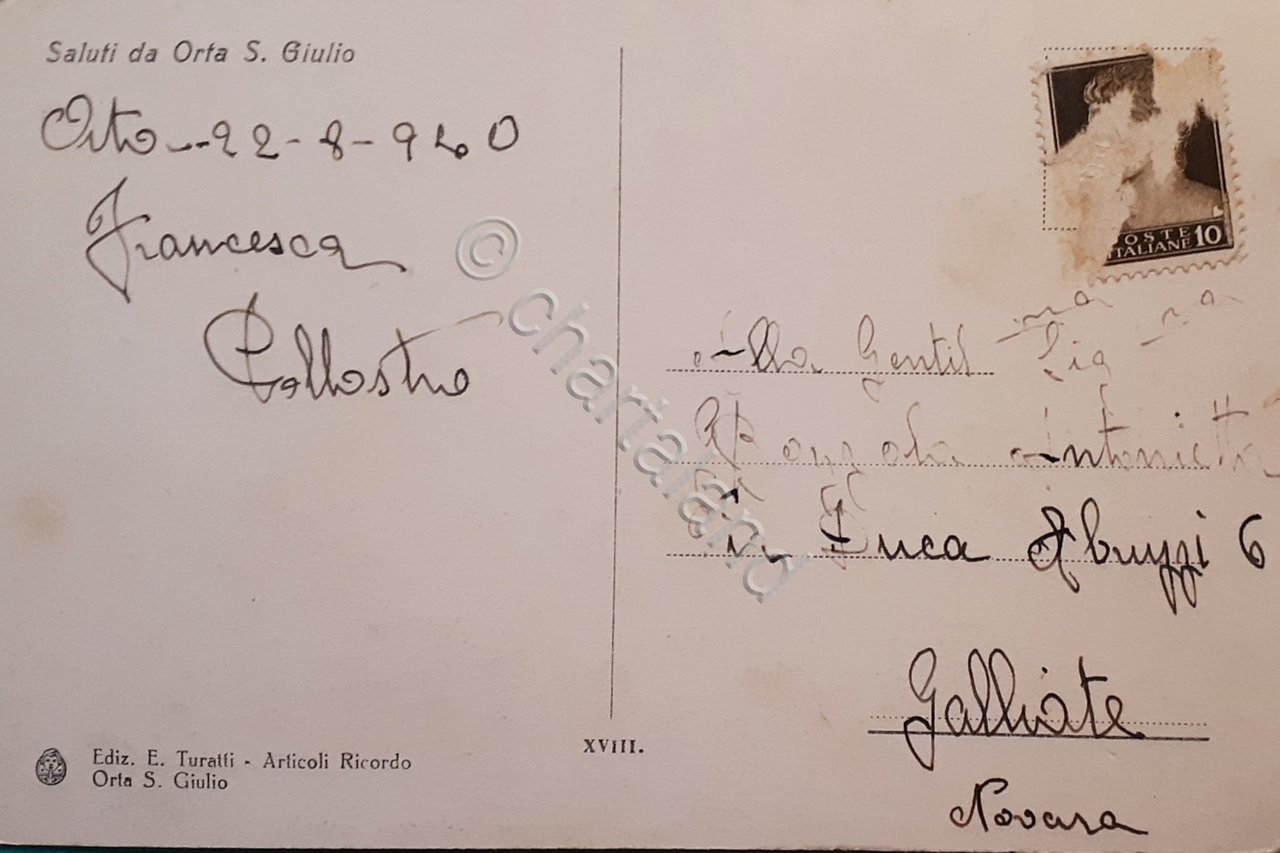 Saluti da Orta S. Giulio
Orta - 22-8-940
Francesca
POSTE
ITALIANE 10
Alla Gentil ma Sig ra
Antonietta
Via Duca Abruzzi 6
Galliate
Novara
XVIII.
Ediz. E. Turatti - Articoli Ricordo
Orta S. Giulio
© chartaland